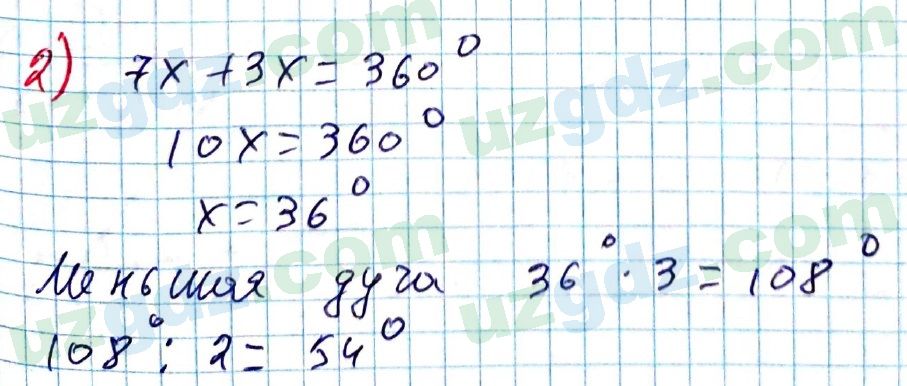 2) 7x + 3x = 360°
10x = 360°
x = 36°
Меньшая дуга 36° · 3 = 108°
108° : 2 = 54°
uzgdz.com
uzgdz.com
uzgdz.com
uzgdz.com